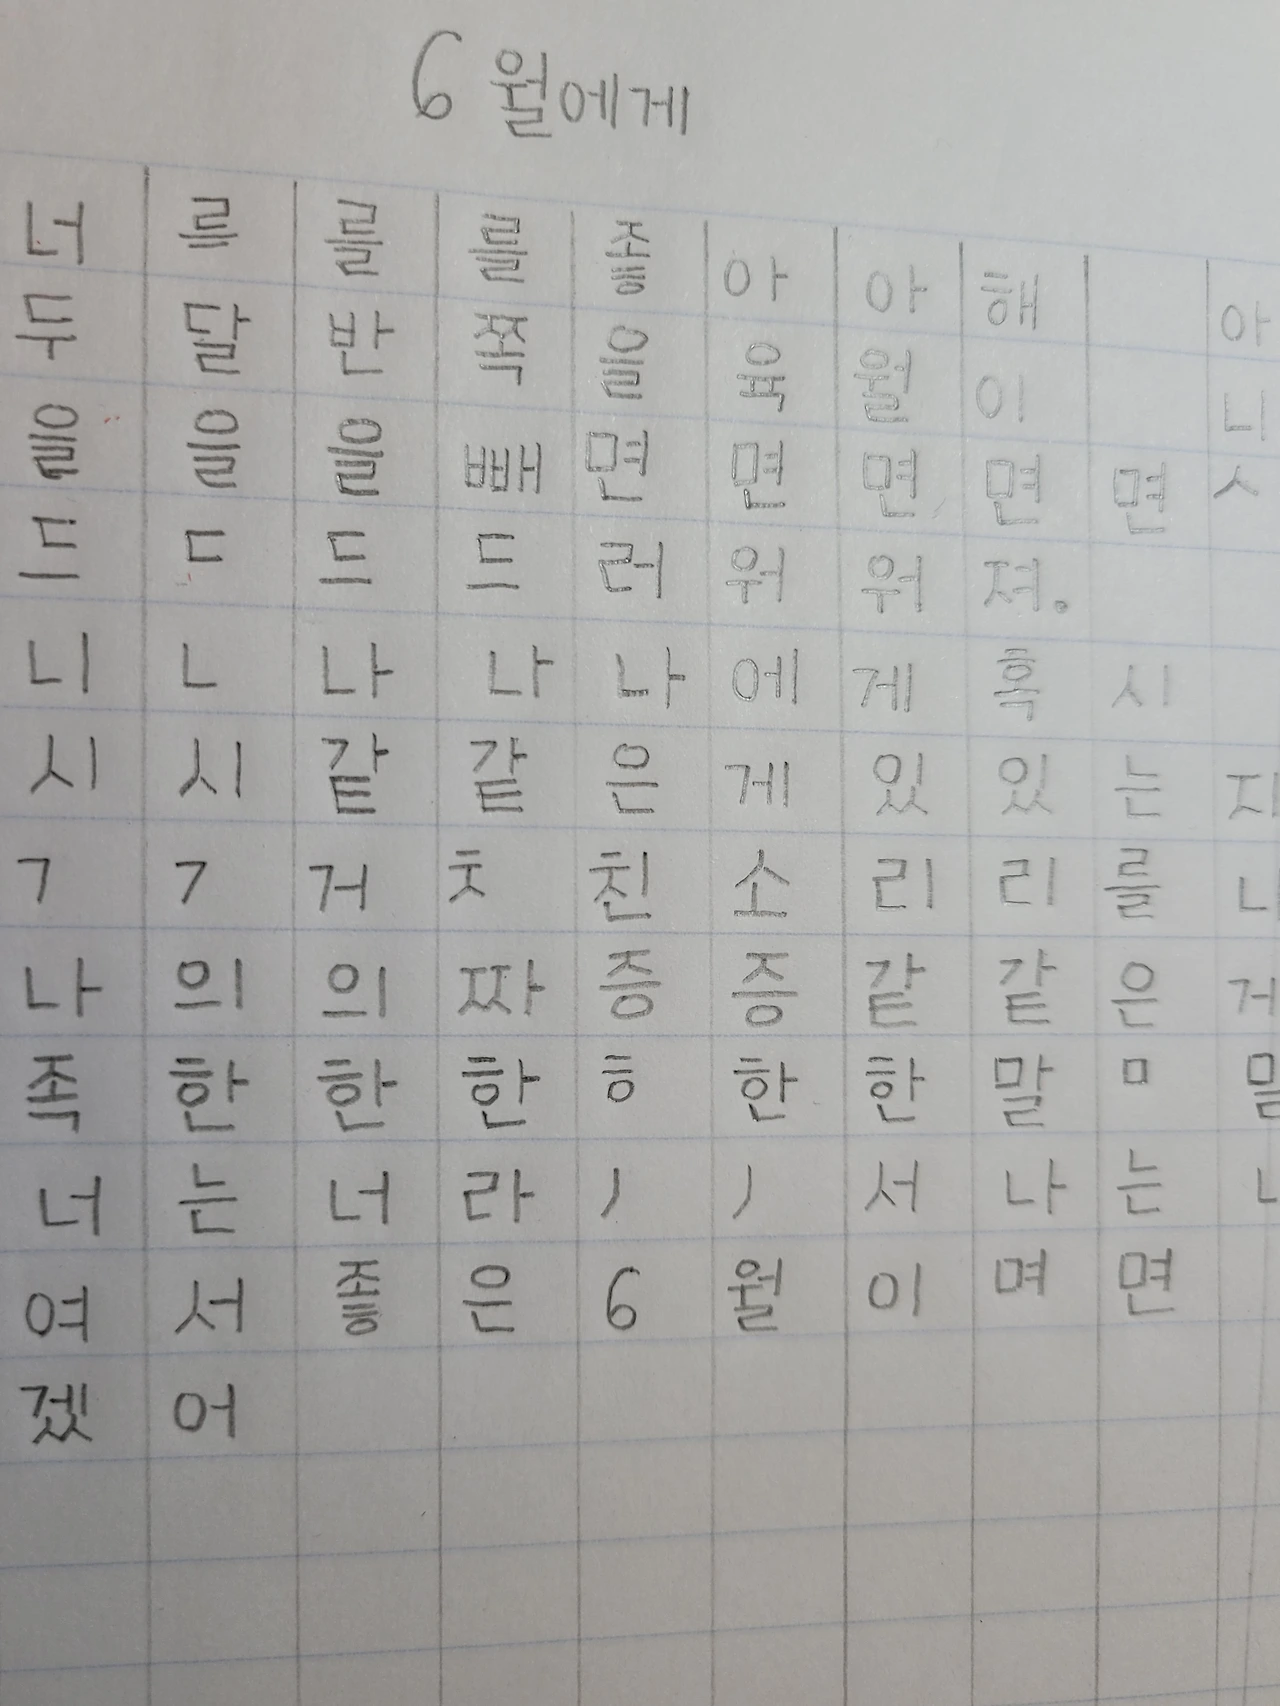 6월에게
너 르 를 를 좋 아 아 해 아
두 달 반 쪽 을 육 월 이 니
을 을 을 빼 면 면 면 면 면 ㅅ
드 ㄷ 드 드 러 워 워 져.
니 ㄴ 나 나 나 에 게 혹 시
시 시 같 같 은 게 있 있 는 지
ㄱ ㄱ 거 ㅊ 친 소 리 리 를
나 의 의 짜 증 증 같 같 은 거
족 한 한 한 ㅎ 한 한 말 ㅁ
너 는 너 라 서 나 는
여 서 좋 은 6 월 이 며 면
겠 어